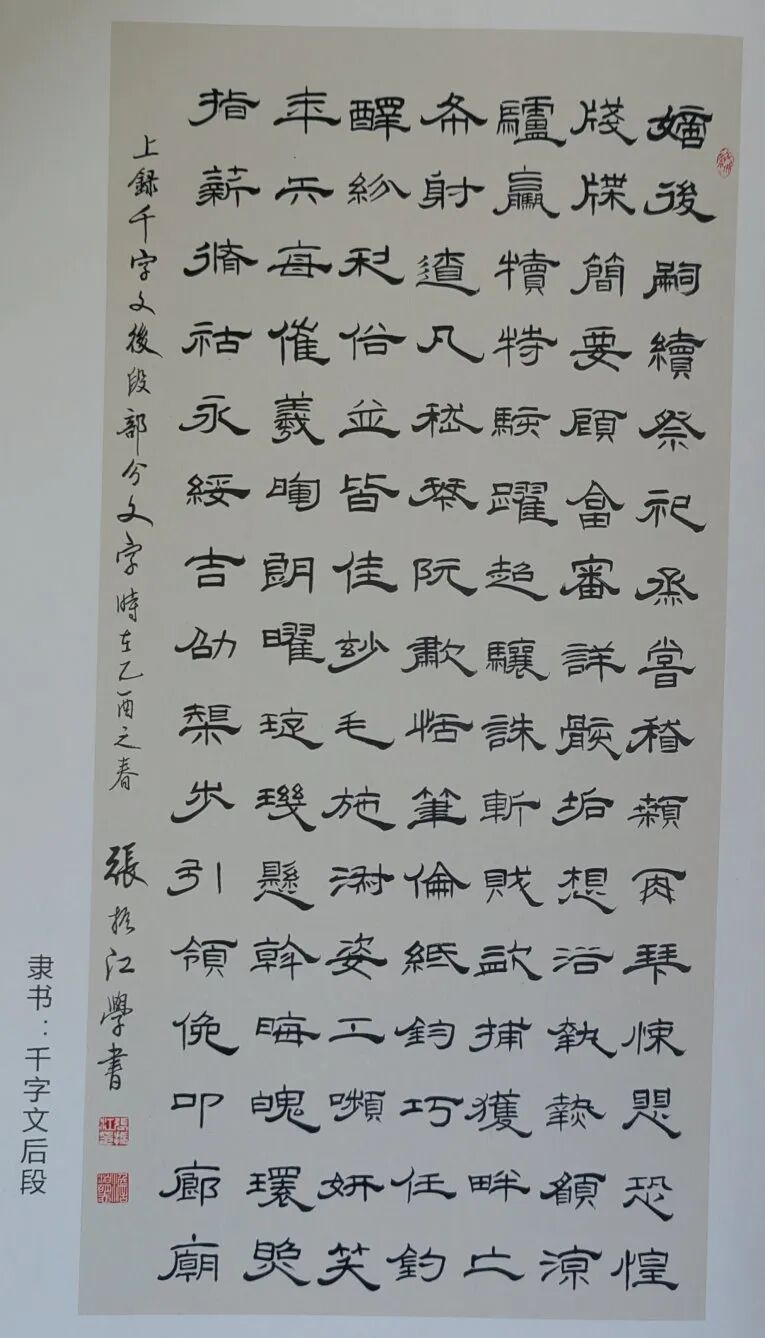 嫡後嗣續祭祀烝嘗稽顙再拜悚懼恐惶
牋牒簡要顧答審詳骸垢想浴執熱願涼
驢驘犢特駭躍超驤誅斬賊盜捕獲畔亡
布射遼丸嵇琴阮嘯恬筆倫紙鈞巧任釣
釋紛利俗並皆佳妙毛施淑姿工嚬妍笑
年矢每催羲暉朗曜琁璣懸斡晦魄環照
指薪脩祜永綏吉劭榘步引領俛仰廊廟
上録千字文後段部分文字時在乙酉之春
張振江學書
隶书：千字文后段